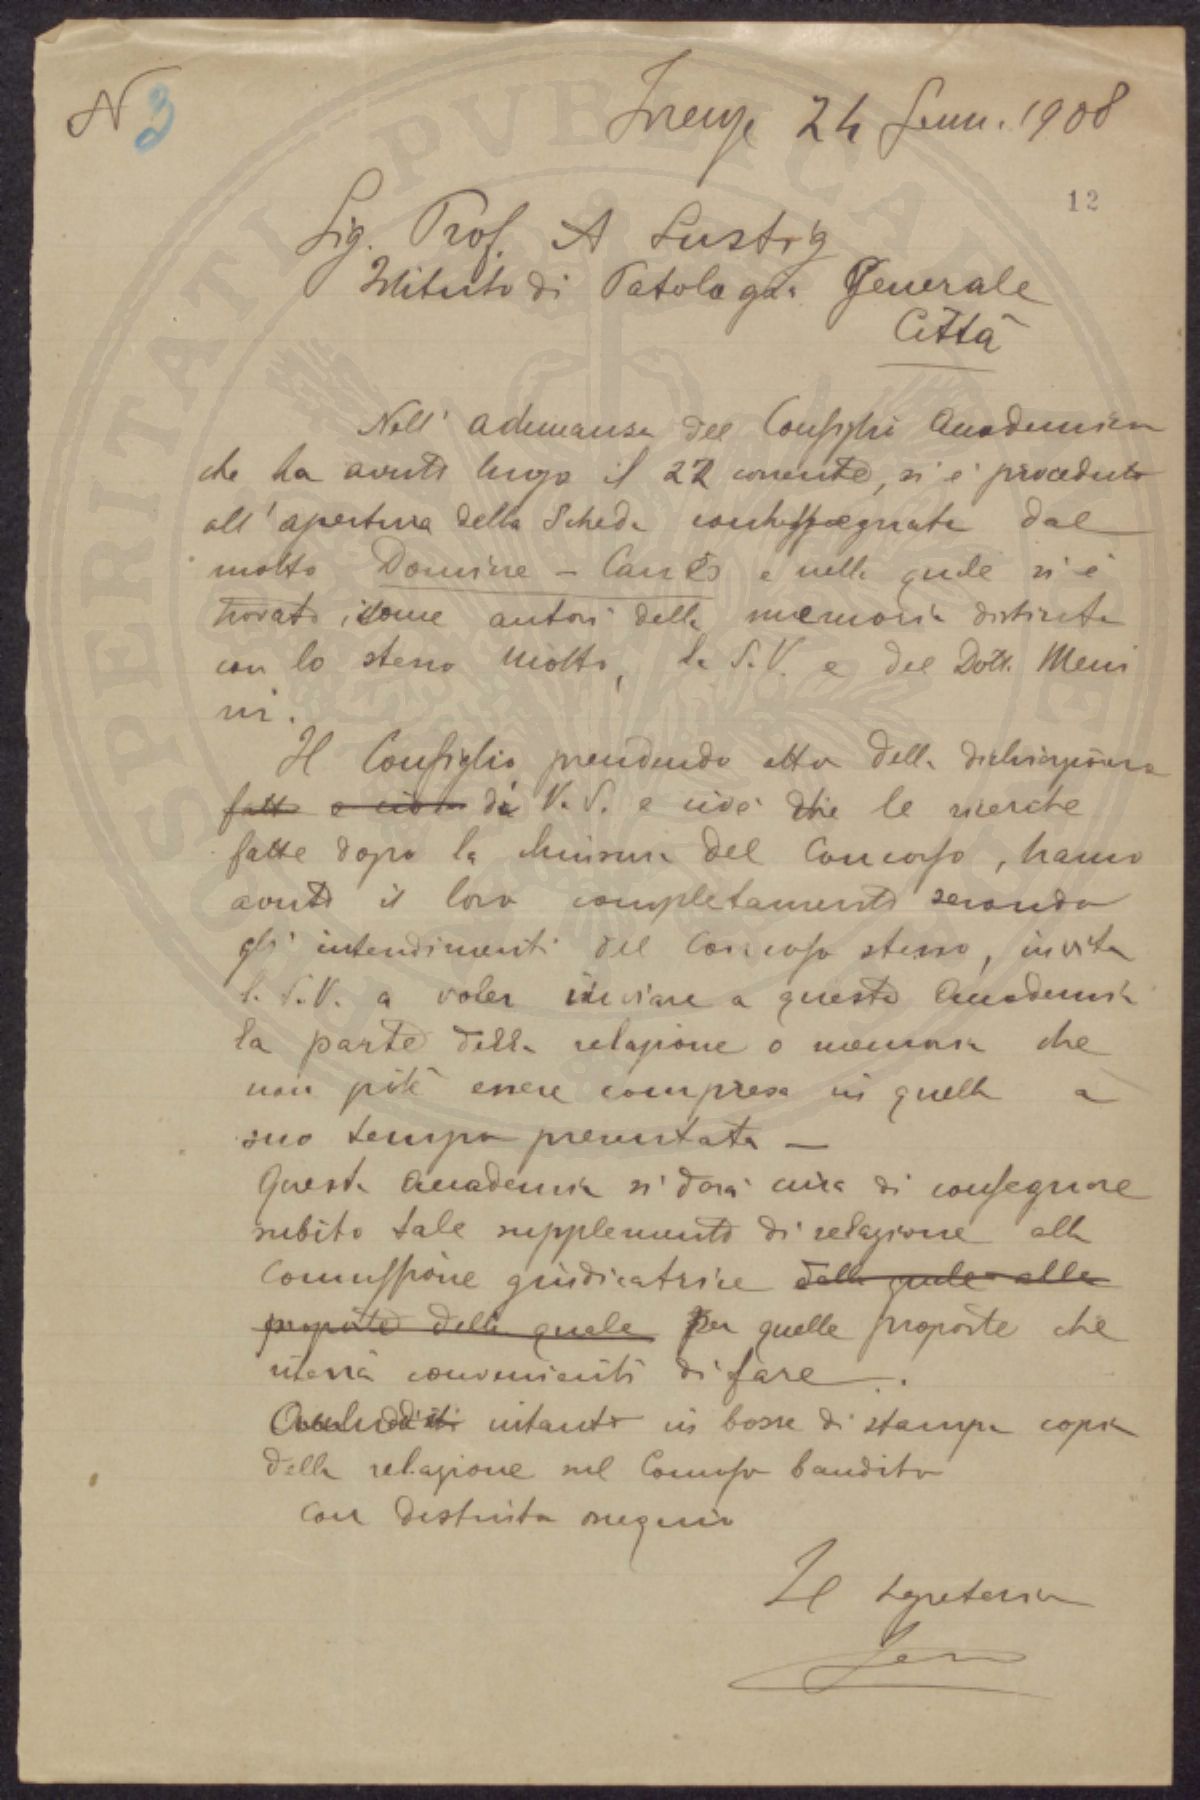 N 3
Firenze 24 Genn. 1908
12
Sig. Prof. A Lustig
Istituto di Patologia Generale
Città
Nell' adunanza del Consiglio Accademico
che ha avuto luogo il 22 corrente, si è proceduto
all' apertura della Scheda contrassegnata dal
motto Domine - Canes e nella quale si è
trovato, come autori della memoria distinta
con lo stesso Motto, la S.V. e del Dott. Meni
ni.
Il Consiglio prendendo atto della dichiarazione
fatta e cioè di V.S. e cioè che le ricerche
fatte dopo la chiusura del Concorso, hanno
avuto il loro completamento secondo
gli intendimenti del Concorso stesso, invita
la S.V. a voler inviare a questa Accademia
la parte della relazione o memoria che
non potè essere compresa in quella a
suo tempo presentata —
Questa Accademia si darà cura di consegnare
subito tale supplemento di relazione alla
Commissione giudicatrice della quale alle
proposte della quale per quelle proposte che
riterrà convenienti di fare.
intanto in bozze di stampa copia
della relazione sul Concorso bandito
Con distinto ossequio
Il Segretario